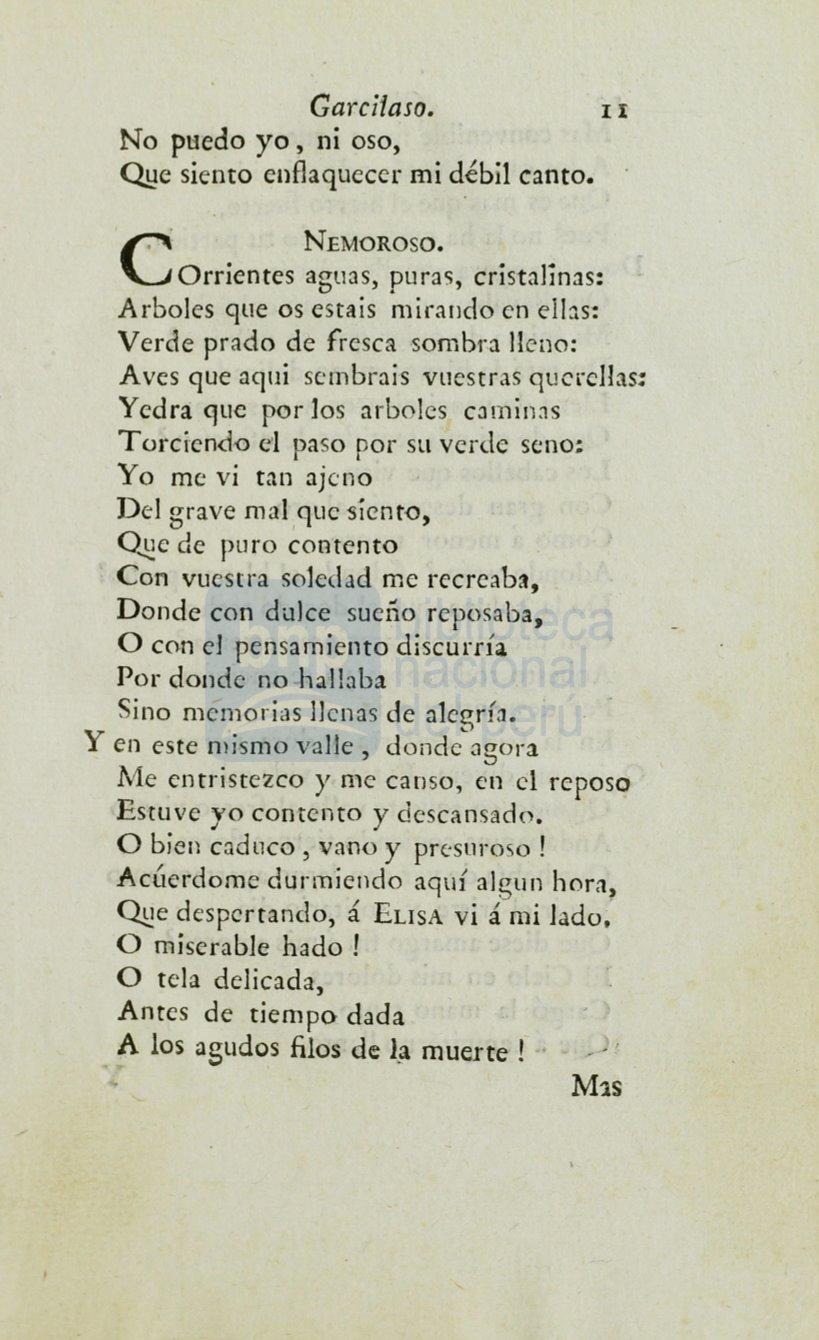 Garcilaso. 11
No puedo yo, ni oso,
Que siento enflaquecer mi débil canto.
NEMOROSO.
COrrientes aguas, puras, cristalinas:
Arboles que os estais mirando en ellas:
Verde prado de fresca sombra lleno:
Aves que aqui sembrais vuestras querellas:
Yedra que por los arboles caminas
Torciendo el paso por su verde seno:
Yo me vi tan ajeno
Del grave mal que siento,
Que de puro contento
Con vuestra soledad me recreaba,
Donde con dulce sueño reposaba,
O con el pensamiento discurría
Por donde no hallaba
Sino memorias llenas de alegría.
Y en este mismo valle, donde agora
Me entristezco y me canso, en el reposo
Estuve yo contento y descansado.
O bien caduco, vano y presuroso!
Acúerdome durmiendo aquí algun hora,
Que despertando, á ELISA vi á mi lado.
O miserable hado!
O tela delicada,
Antes de tiempo dada
A los agudos filos de la muerte!
Mas
biblioteca
nacional
del perú